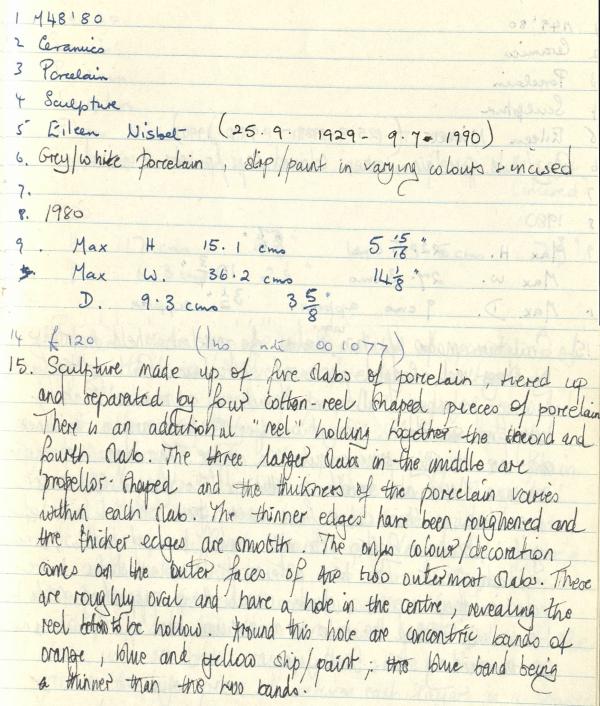 1 M48'80
2 Ceramics
3 Porcelain
4 Sculpture
5 Eileen Nisbet (25.9. 1929 - 9.7. 1990)
6. Grey/white Porcelain, slip/paint in varying colours & incised
7.
8. 1980
9. Max H 15.1 cms 5 15/16"
Max W. 36.2 cms 14 1/8"
D. 9.3 cms 3 5/8"
14 £120 (Inv nt 001077)
15. Sculpture made up of five slabs of porcelain, tiered up
and separated by four cotton-reel shaped pieces of porcelain
There is an additional "reel" holding together the second and
fourth slab. The three larger slabs in the middle are
propellor-shaped and the thickness of the porcelain varies
within each slab. The thinner edges have been roughened and
the thicker edges are smooth. The only colour/decoration
comes on the outer faces of the two outermost slabs. These
are roughly oval and have a hole in the centre, revealing the
reel to be hollow. Around this hole are concentric bands of
orange, blue and yellow slip/paint; the blue band being
a thinner than the two bands.